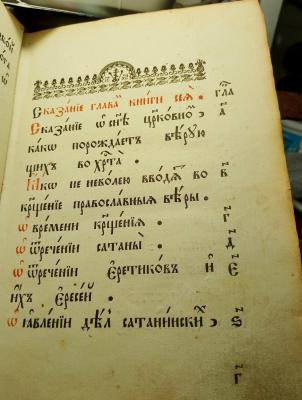 Сказа́нїе глава́м кни́ги сеѧ̀ . гла
Сказанїе ѿ сн҃ѣ цр҃ковно́м а
ка́кѡ порождаетъ вѣ́рꙋю
щихъ во хрⷭ҇та̀
Ꙗ́кѡ не нево́лею вводѧ́тъ во в
кр҃ще́нїе правосла́вныѧ вѣ́ры .
ѡ вре́мени кр҃ще́нїѧ г
ѡ ѿрече́нїи сатаны̀ д
ѡ ѿрече́нїи є҆ретикѡ́въ и҆ є
и҆́хъ є҆ресе́й .
ѡ ꙗ҆вле́нїи дѣ́лъ сатани́нски ѕ
г